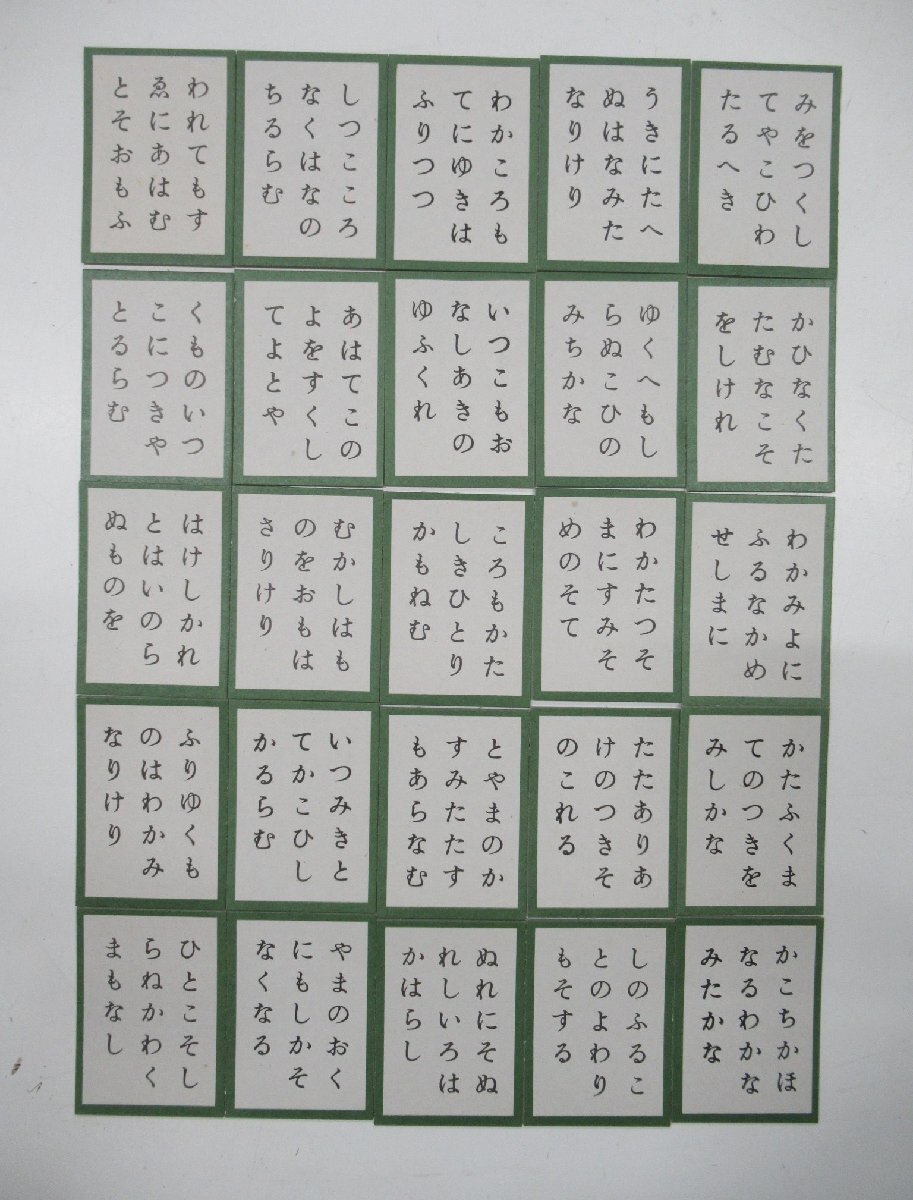 みをつくし
てやこひわ
たるへき
うきにたへ
ぬはなみた
なりけり
わかころも
てにゆきは
ふりつつ
しつこころ
なくはなの
ちるらむ
われてもす
ゑにあはむ
とそおもふ
かひなくた
たむなこそ
をしけれ
ゆくへもし
らぬこひの
みちかな
いつこもお
なしあきの
ゆふくれ
あはてこの
よをすくし
てよとや
くものいつ
こにつきや
とるらむ
わかみよに
ふるなかめ
せしまに
わかたつそ
まにすみそ
めのそて
ころもかた
しきひとり
かもねむ
むかしはも
のをおもは
さりけり
はけしかれ
とはいのら
ぬものを
かたふくま
てのつきを
みしかな
たたありあ
けのつきそ
のこれる
とやまのか
すみたたす
もあらなむ
いつみきと
てかこひし
かるらむ
ふりゆくも
のはわかみ
なりけり
かこちかほ
なるわかな
みたかな
しのふるこ
とのよわり
もそする
ぬれにそぬ
れしいろは
かはらし
やまのおく
にもしかそ
なくなる
ひとこそし
らねかわく
まもなし